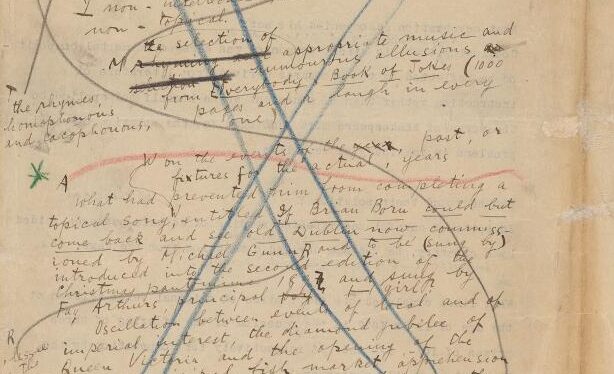 I non-
non-topical.
the selection of appropriate music and
M rhyming
humourous allusions
from Everybody's Book of Jokes (1000
pages and a laugh in every
one)
the rhymes,
homophonous
and cacophonous,
W on the events, past, or
fixtures for the actual, years
A
What had prevented him from completing a
topical song, entitled If Brian Boru could but
come back and see old Dublin now commiss-
ioned by Michael Gunn R and to be (sung by)
introduced into the second edition of the
Christmas pantomime and sung by
principal girl?
Oscillation between events of local and of
imperial interest, the diamond jubilee of
Queen Victoria and the opening of the
fish market apprehension
R